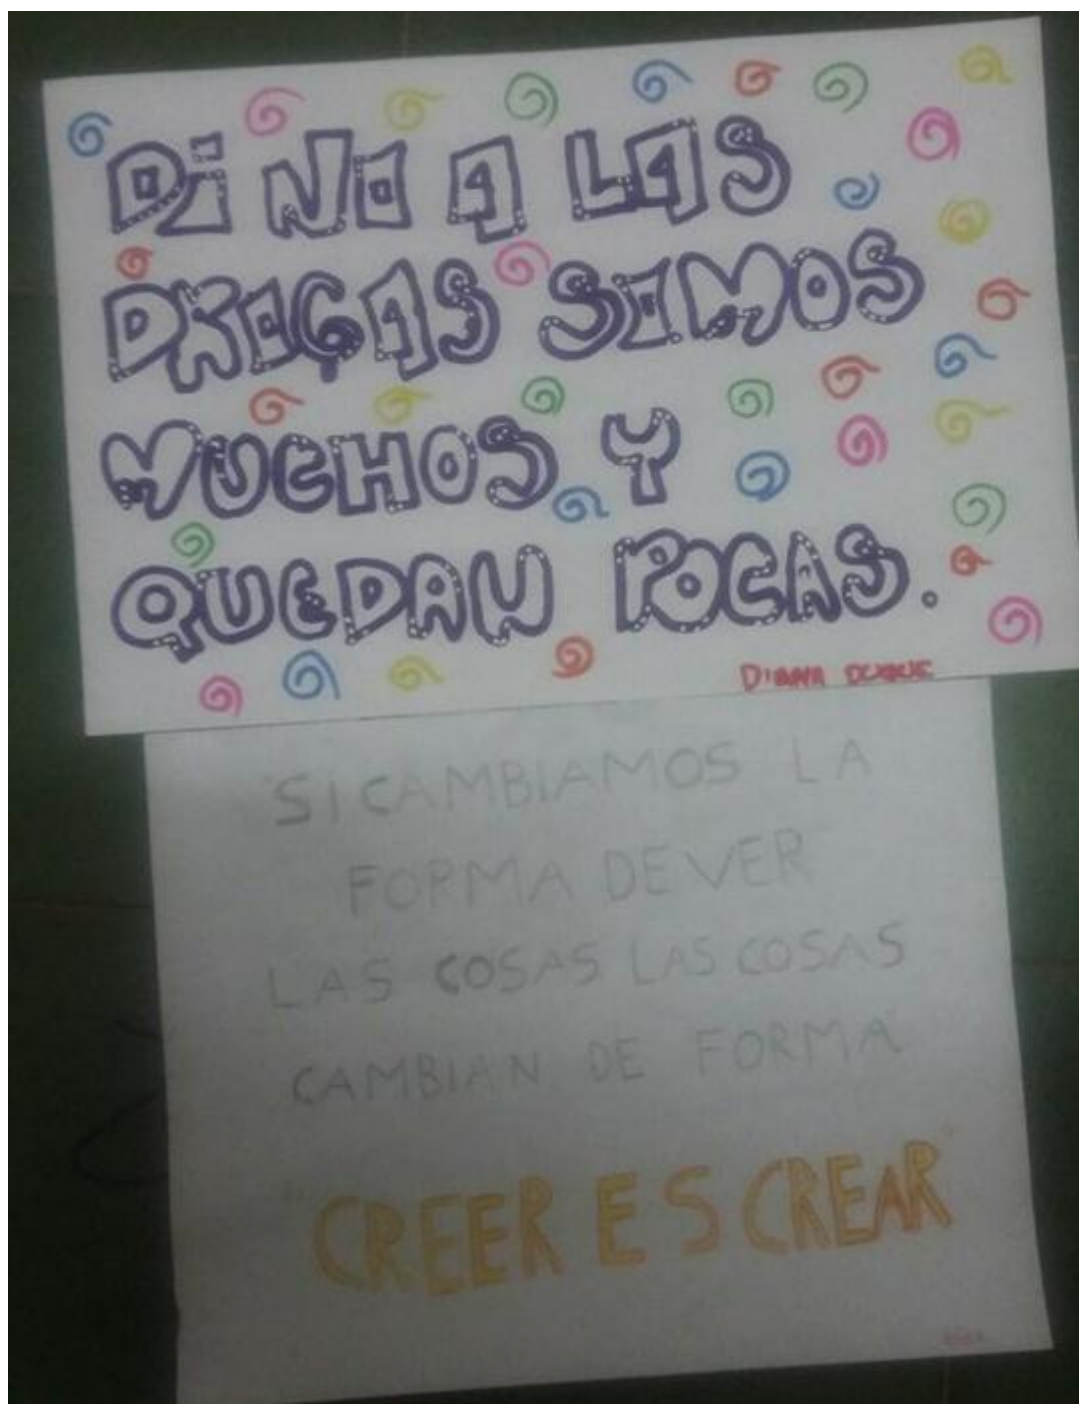 Di NO A LAS
DROGAS SOMOS
MUCHOS Y
QUEDAN POCAS.
DIANA DUQUE
"SI CAMBIAMOS LA
FORMA DE VER
LAS COSAS LAS COSAS
CAMBIAN DE FORMA
"CREER ES CREAR"